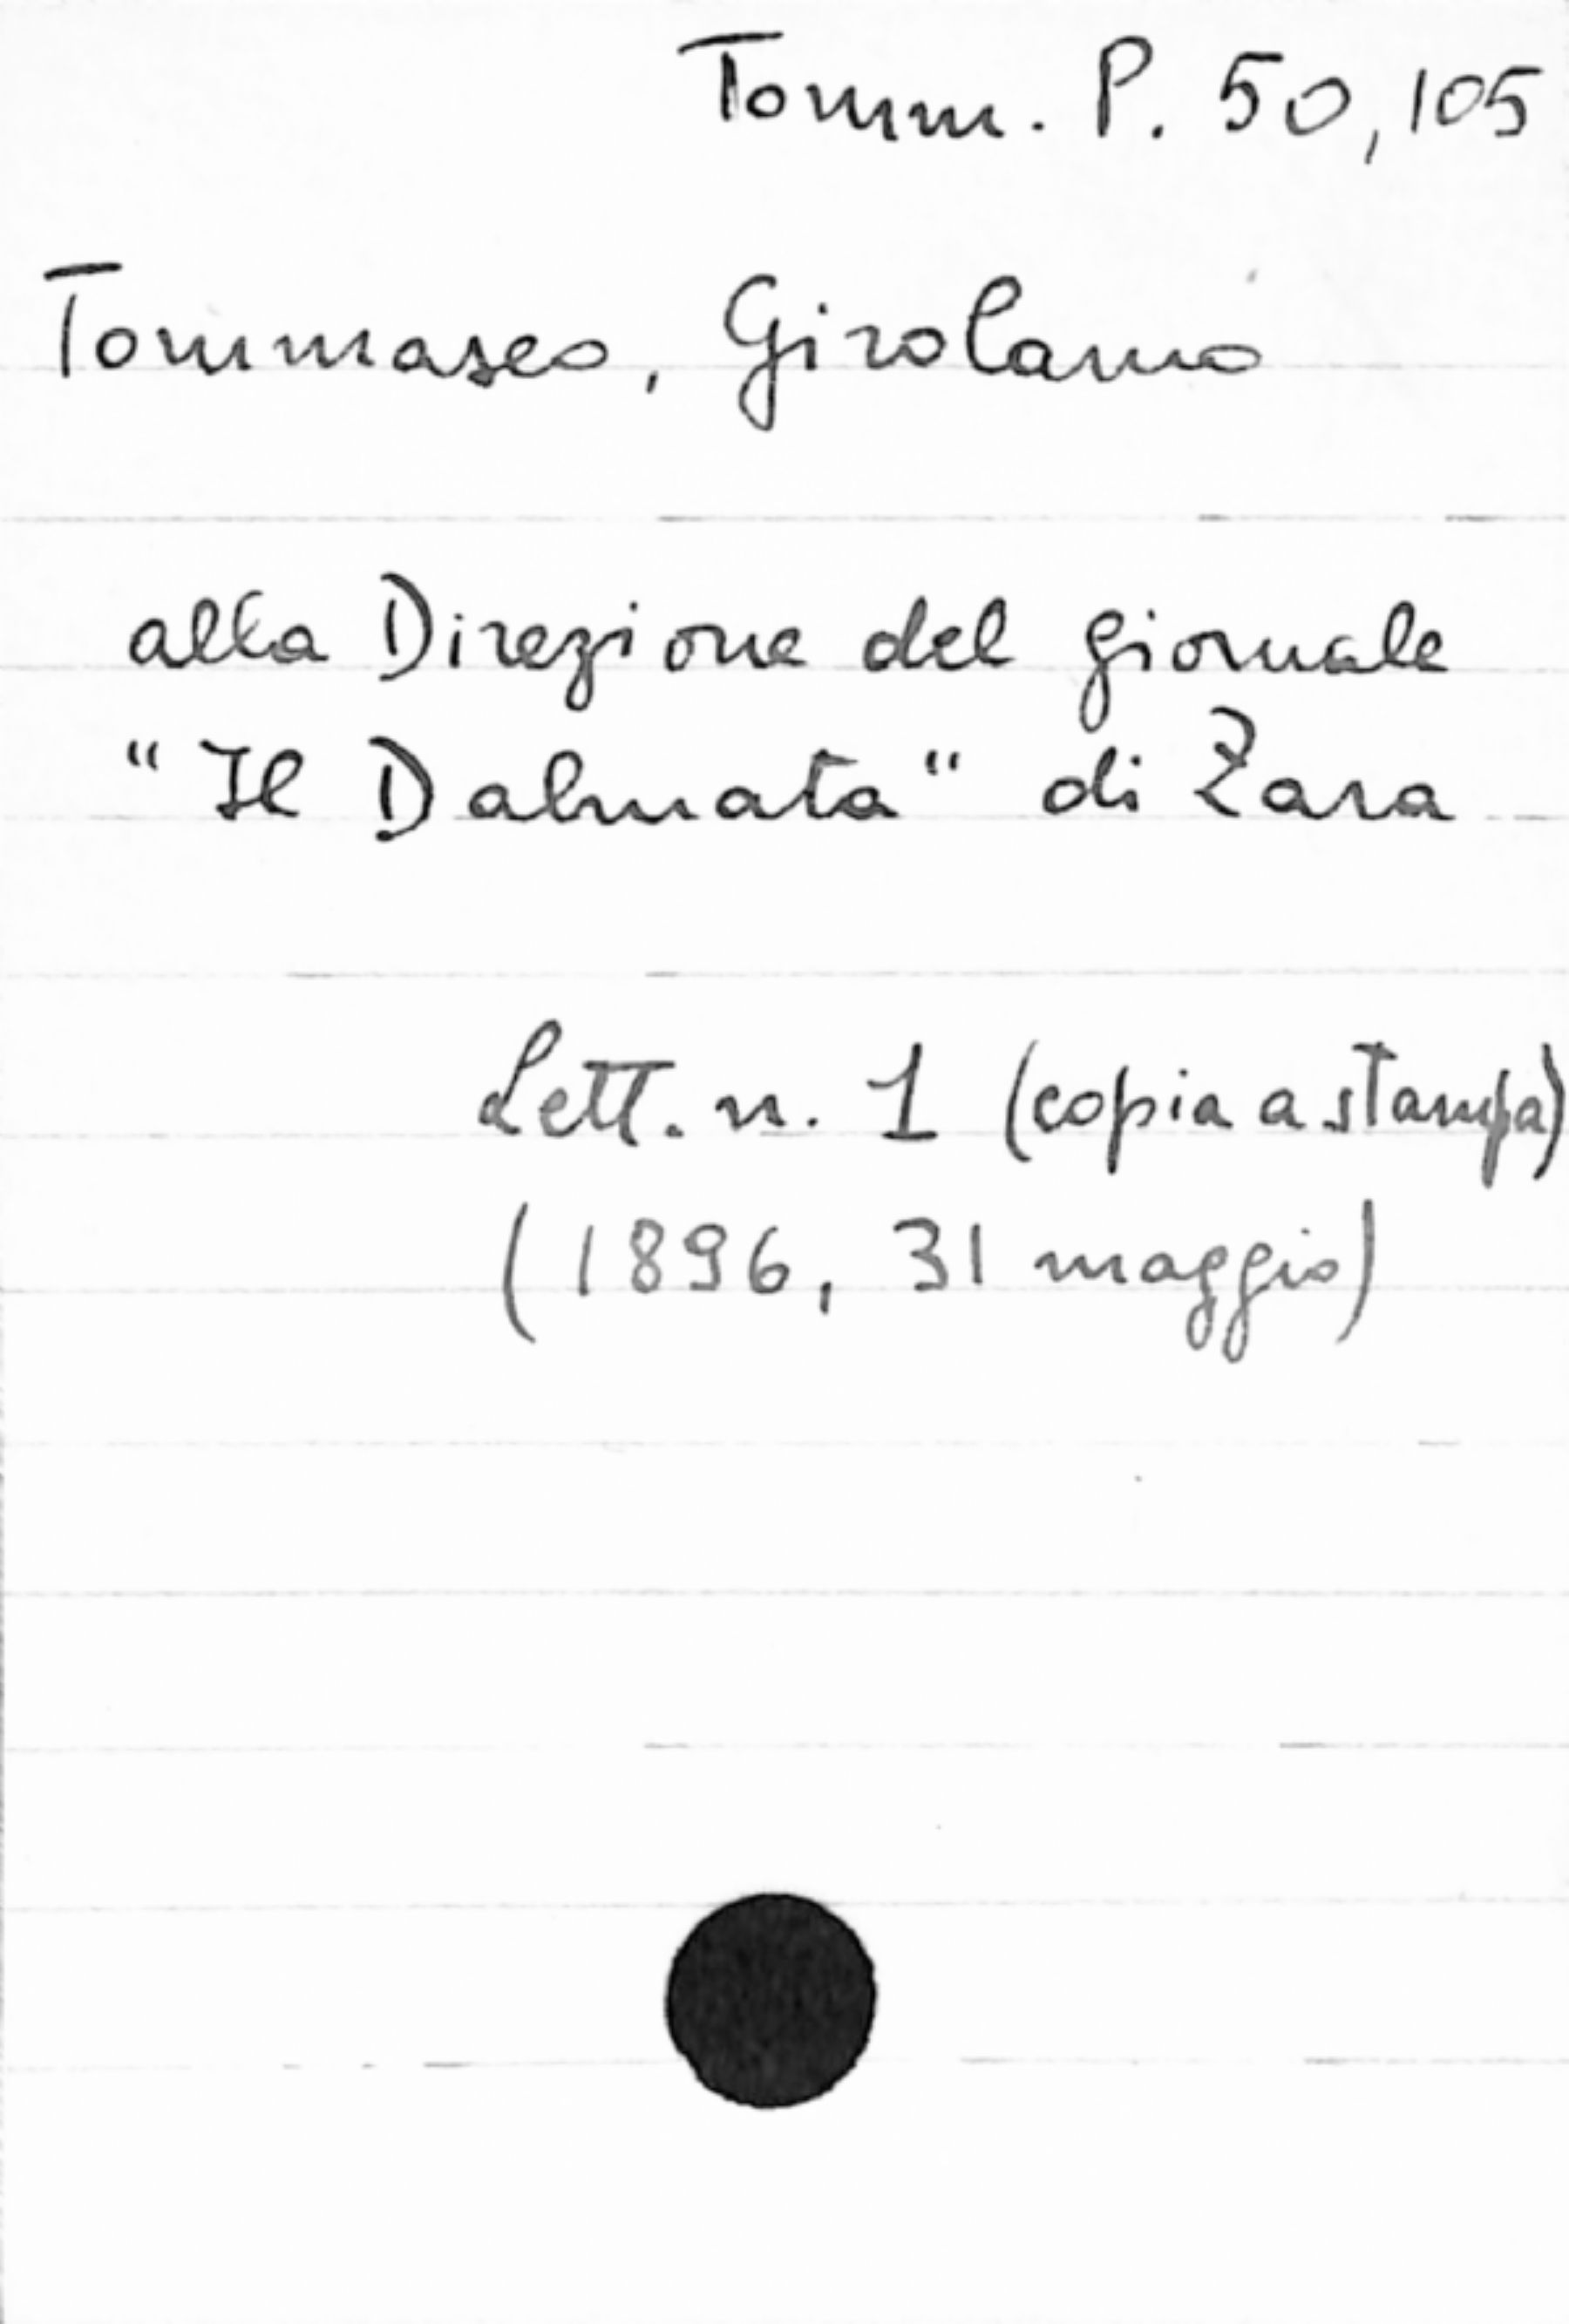 Tomm. P. 50,105
Tommaseo, Girolamo
alla Direzione del giornale
"Il Dalmata" di Zara
Lett. n. 1 (copia a stampa)
(1896, 31 maggio)